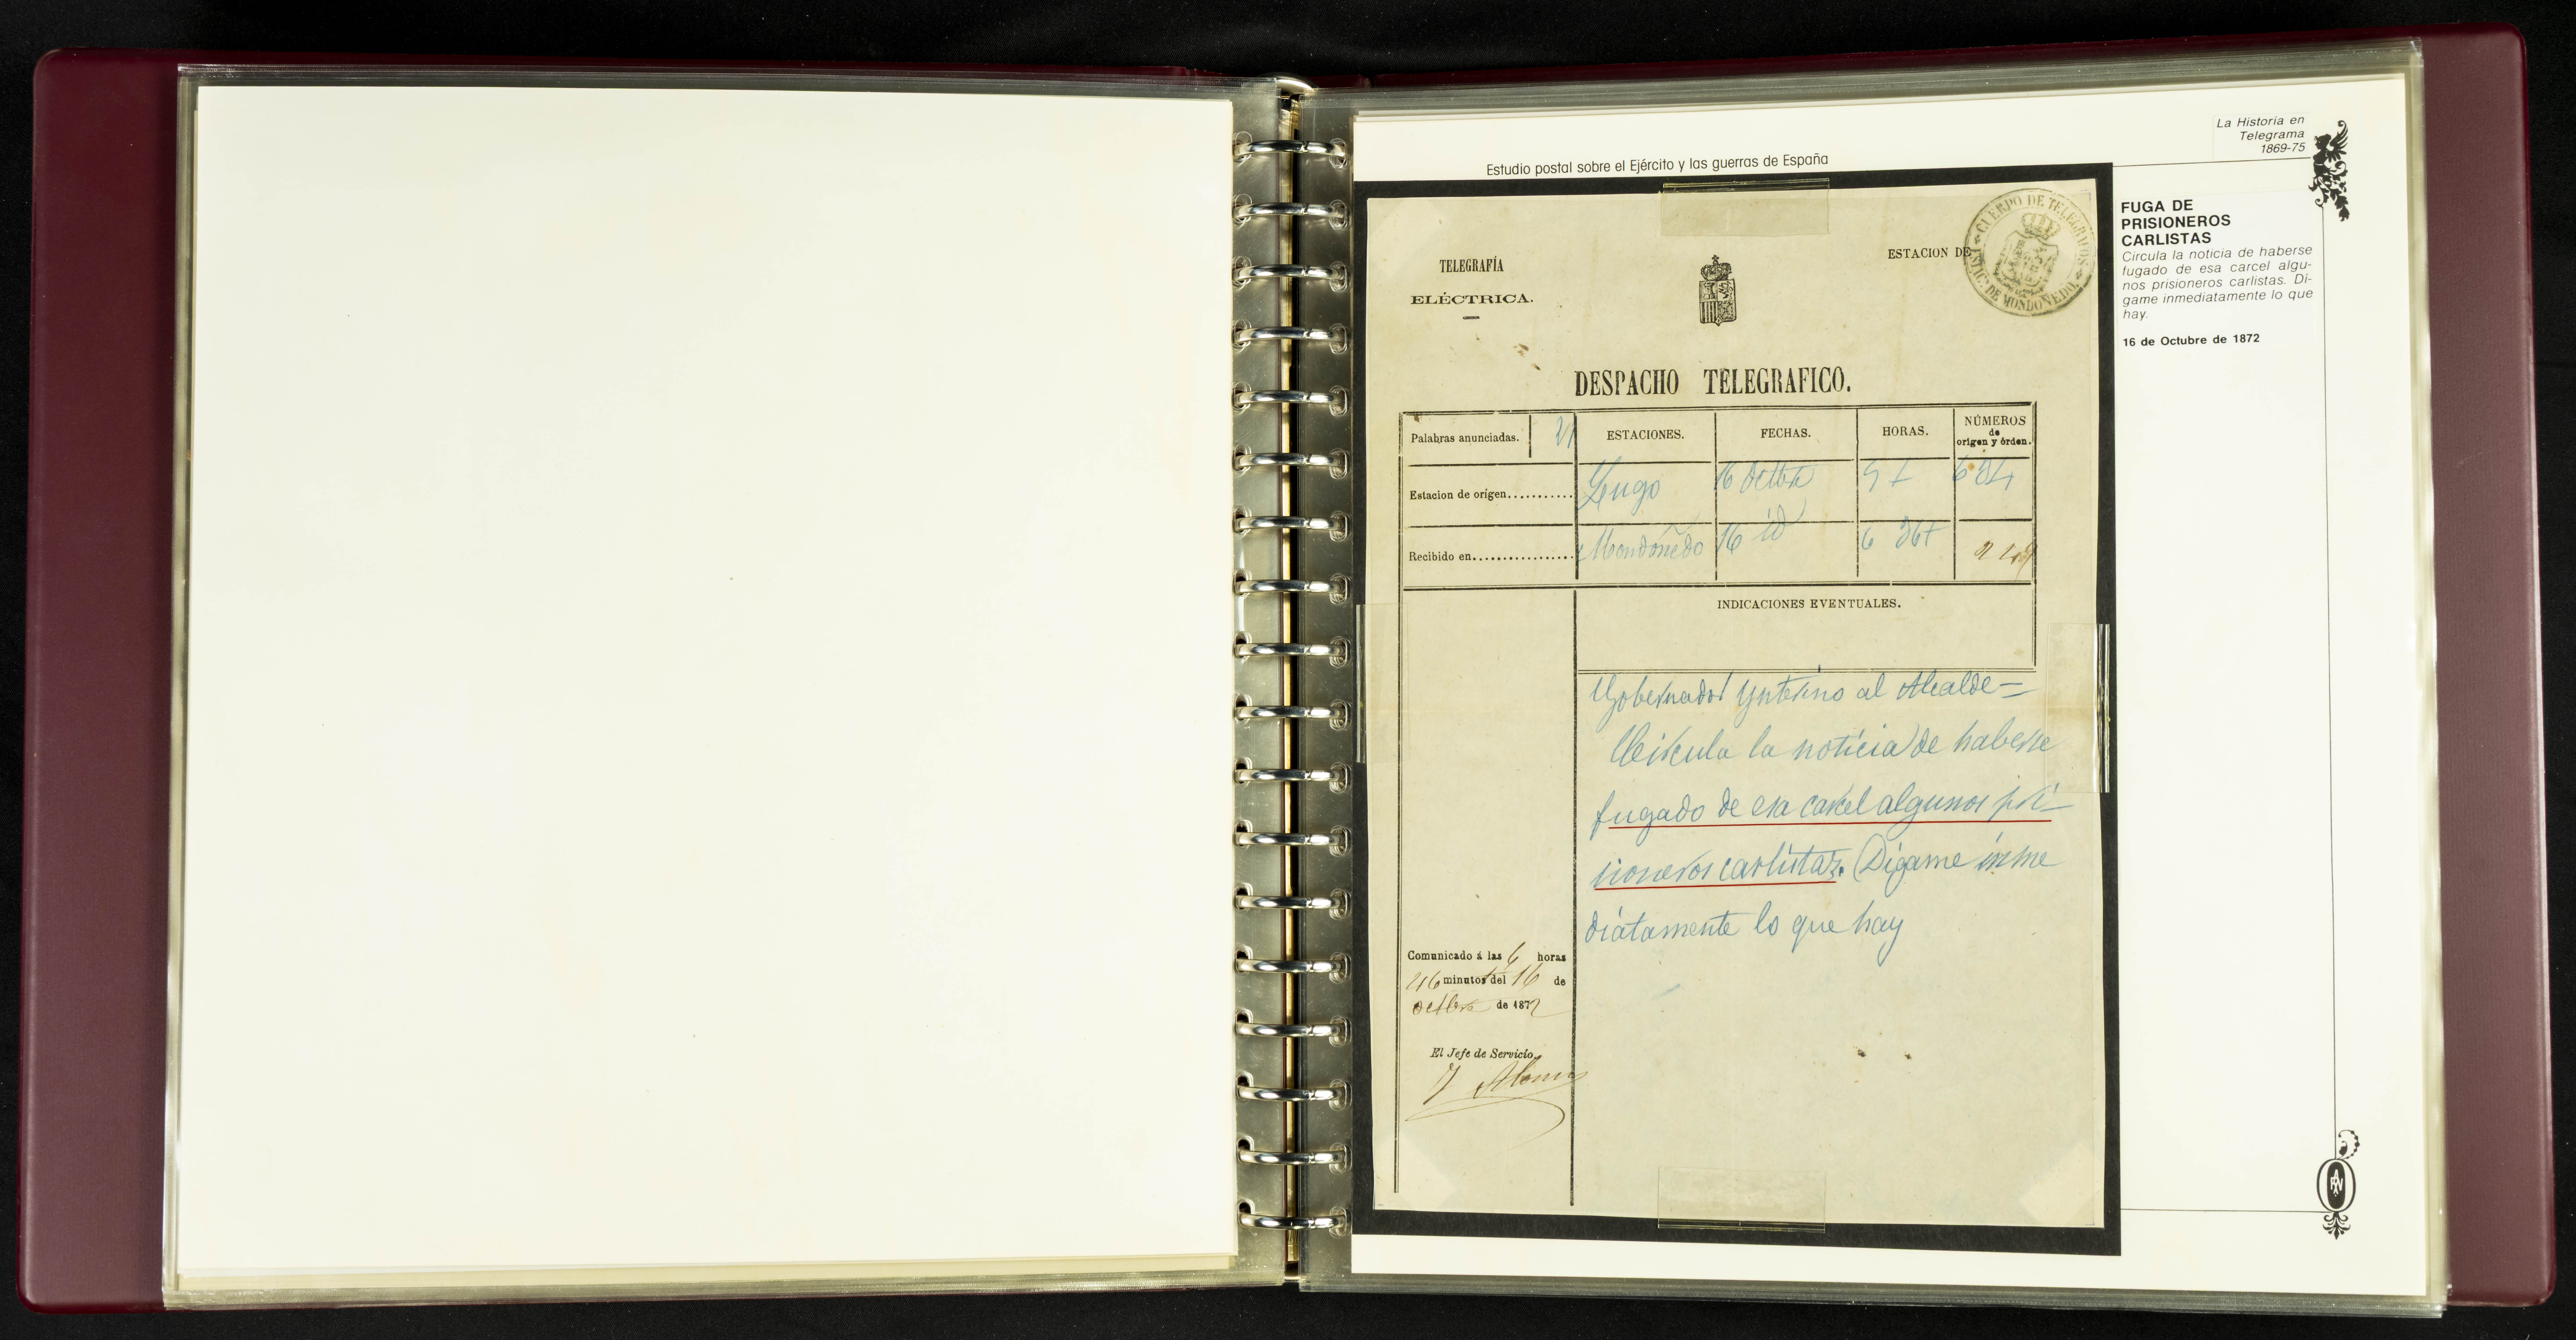 La Historia en
Telegrama
1869-75
Estudio postal sobre el Ejército y las guerras de España
FUGA DE
PRISIONEROS
CARLISTAS
Circula la noticia de haberse
fugado de esa carcel algu-
nos prisioneros carlistas. Di-
game inmediatamente lo que
hay.
16 de Octubre de 1872
TELEGRAFÍA
ELÉCTRICA.
ESTACION DE
CUERPO DE TELEGRAFOS
DE MONDOÑEDO
DESPACHO TELEGRAFICO.
Palabras anunciadas. 21 ESTACIONES. FECHAS. HORAS. NÚMEROS
de
origen y órden.
Estacion de orígen........... Lugo 16 Octbre
Recibido en................ Mondoñedo 16 id 6
INDICACIONES EVENTUALES.
Gobernador Ynterino al Alcalde=
Circula la noticia de haberse
fugado de esa carcel algunos pri-
sioneros carlistas. Digame inme
diatamente lo que hay
Comunicado á las 6 horas
46 minutos del 16 de
octbre de 1872
El Jefe de Servicio.